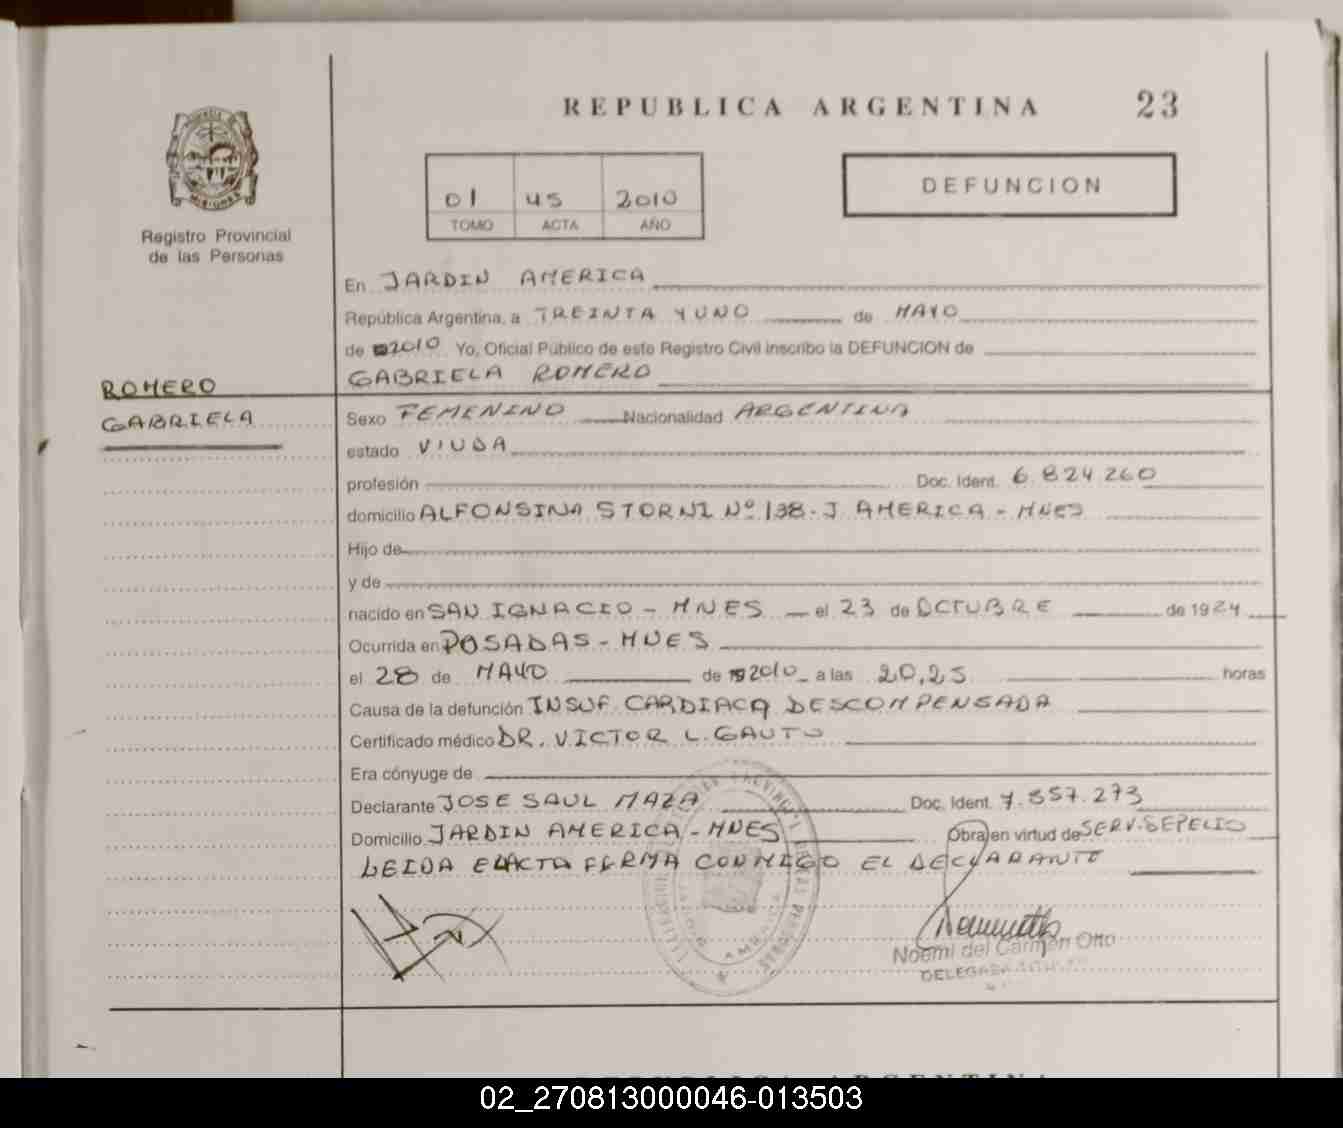 REPUBLICA ARGENTINA 23
01 45 2010
TOMO ACTA AÑO
DEFUNCION
MISIONES
Registro Provincial
de las Personas
En JARDIN AMERICA
República Argentina, a TREINTA Y UNO de MAYO
de 2010 Yo, Oficial Público de este Registro Civil inscribo la DEFUNCION de
GABRIELA ROMERO
ROMERO
GABRIELA
Sexo FEMENINO Nacionalidad ARGENTINA
estado VIUDA
profesión Doc. Ident. 6.824.260
domicilio ALFONSINA STORNI Nº 138 - J. AMERICA - MNES
Hijo de
y de
nacido en SAN IGNACIO - MNES el 23 de OCTUBRE de 1924
Ocurrida en POSADAS - MNES
el 28 de MAYO de 2010 a las 20,25 horas
Causa de la defunción INSUF. CARDIACA DESCOMPENSADA
Certificado médico DR. VICTOR L. GAUTO
Era cónyuge de
Declarante JOSE SAUL MAZA Doc. Ident. 7.557.273
Domicilio JARDIN AMERICA - MNES Obra en virtud de SERV. SEPELIO
LEIDA EL ACTA FIRMA CONMIGO EL DECLARANTE
Noemi del Carmen Otto
DELEGADA TITULAR
REPUBLICA ARGENTINA
02_270813000046-013503